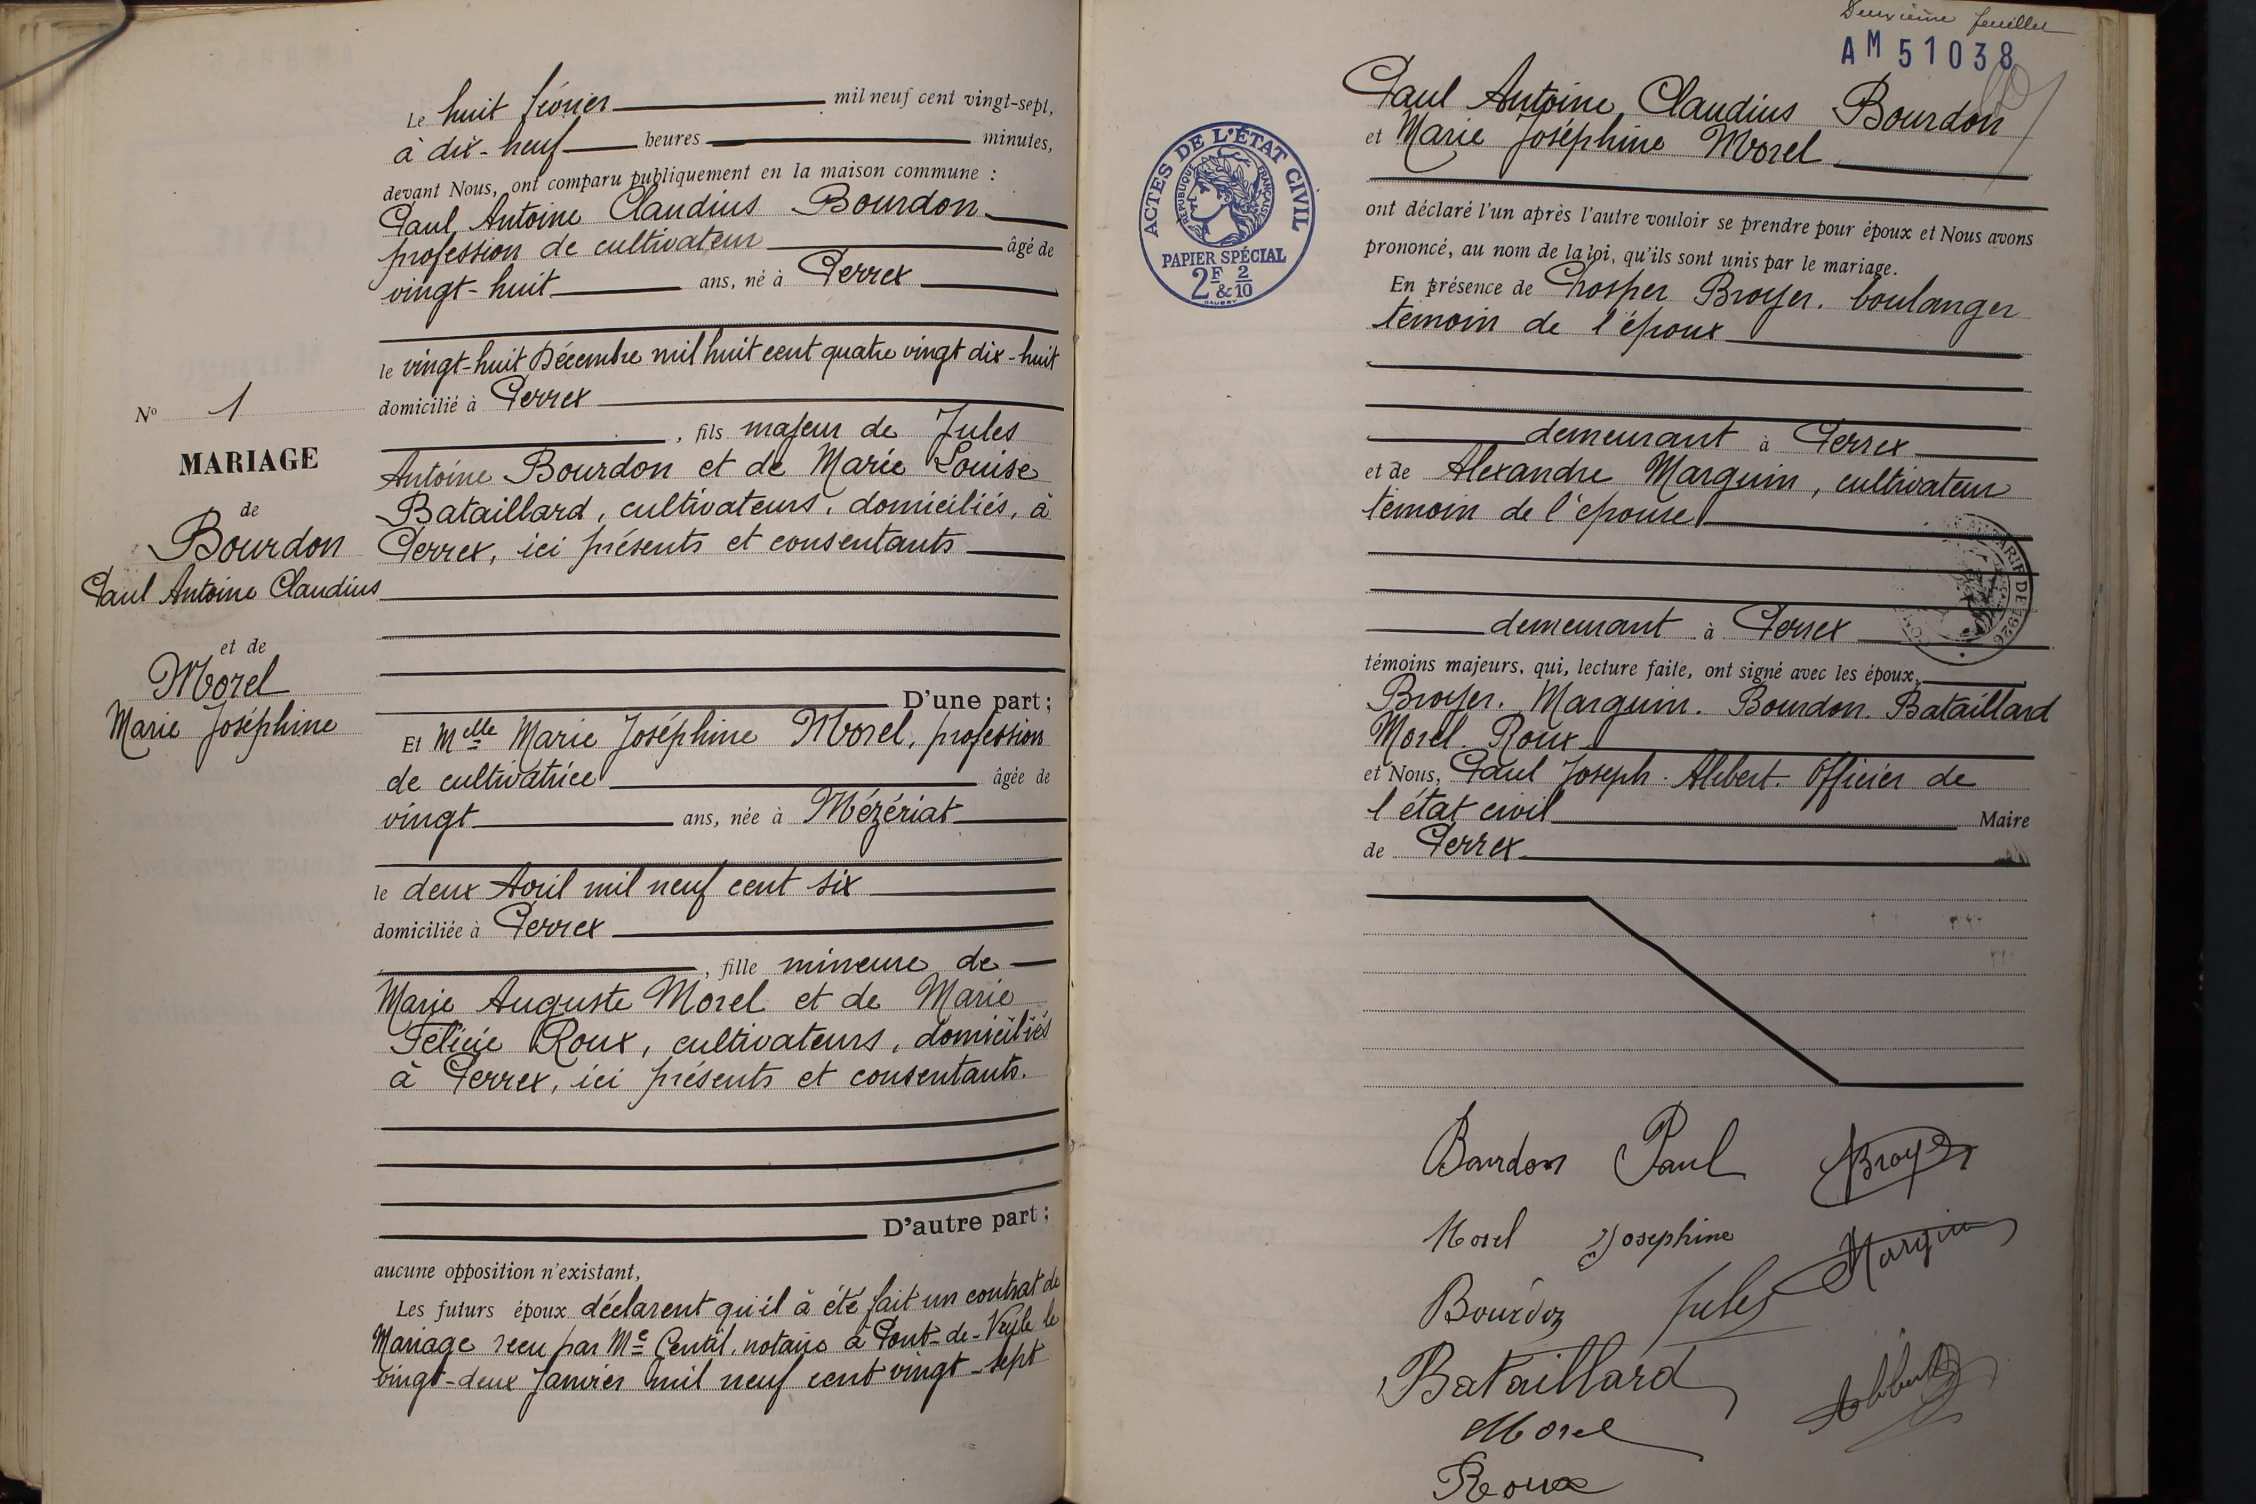 Le huit février mil neuf cent vingt-sept,
à dix-neuf heures minutes,
devant Nous, ont comparu publiquement en la maison commune :
Paul Antoine Claudius Bourdon
profession de cultivateur âgé de
vingt-huit ans, né à Perrex
le vingt-huit Décembre mil huit cent quatre vingt dix-huit
domicilié à Perrex
, fils majeur de Jules
Antoine Bourdon et de Marie Louise
Bataillard, cultivateurs, domiciliés, à
Perrex, ici présents et consentants
D'une part ;
Nº 1
MARIAGE
de
Bourdon
Paul Antoine Claudius
et de
Morel
Marie Joséphine
Et Melle Marie Joséphine Morel, profession
de cultivatrice âgée de
vingt ans, née à Mézériat
le deux Avril mil neuf cent six
domiciliée à Perrex
, fille mineure de
Marie Auguste Morel et de Marie
Félicie Roux, cultivateurs, domiciliés
à Perrex, ici présents et consentants.
D'autre part ;
aucune opposition n'existant,
Les futurs époux déclarent qu'il à été fait un contrat de
Mariage recu par Me Gentil, notaire à Pont-de-Veyle le
vingt-deux Janvier mil neuf cent vingt-sept
Deuxième feuillet
AM 51038
Paul Antoine Claudius Bourdon
et Marie Joséphine Morel
ACTES DE L'ÉTAT CIVIL
RÉPUBLIQUE FRANÇAISE
PAPIER SPÉCIAL
2F & 2/10
ont déclaré l'un après l'autre vouloir se prendre pour époux et Nous avons
prononcé, au nom de la loi, qu'ils sont unis par le mariage.
En présence de Prosper Broyer. boulanger
témoin de l'époux
demeurant à Perrex
et de Alexandre Marguin, cultivateur
témoin de l'épouse
demeurant à Perrex
1926
témoins majeurs, qui, lecture faite, ont signé avec les époux,
Broyer. Marguin. Bourdon. Bataillard
Morel. Roux
et Nous, Paul Joseph Alibert. Officier de
l'état civil Maire
de Perrex
Bourdon Paul Broyer
Morel Josephine
Marguin
Bourdon Jules
Bataillard
Alibert
Morel
Roux